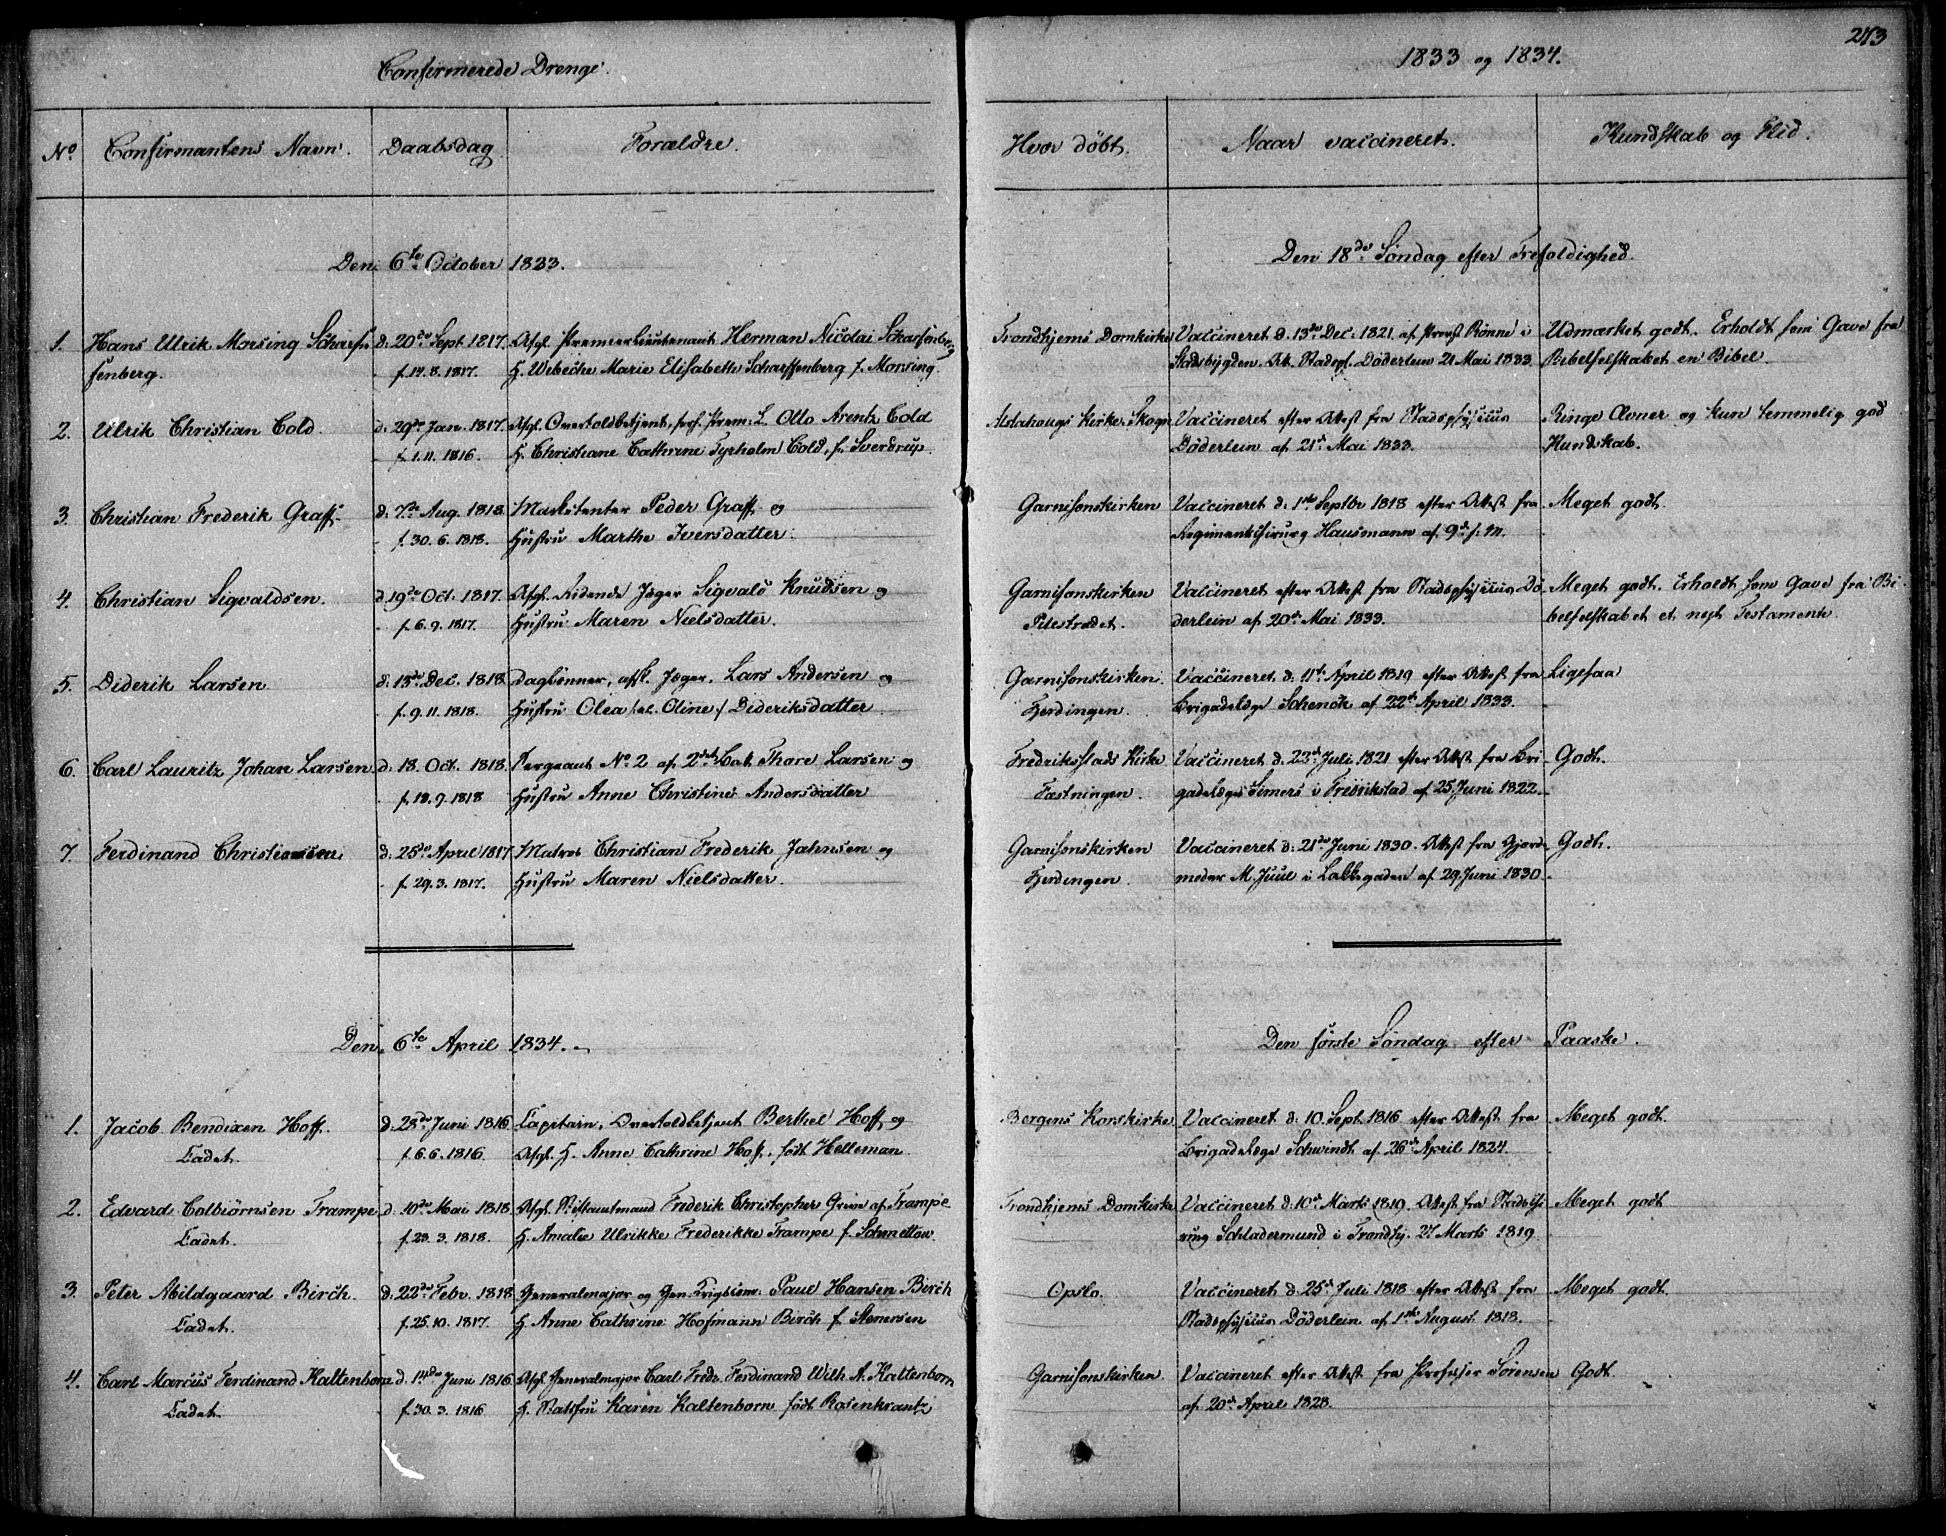 Confirmerede Drenge.
1833 og 1834.
273
No
Confirmantens Navn.
Daabsdag
Forældre.
Hvor døbt.
Naar vaccineret.
Kundskab og Flid.
Den 6te October 1833.
Den 18de Søndag efter Trefoldighed.
1. Hans Ulrik Morsing Scharf- d. 20de Sept 1817. Afgl. Premierlieutenant Herman Nicolai Scharfenberg Trondhjems Domkirke Vaccineret d. 13de Dec. 1821 af Provst Rønne i Udmærket godt. Erholdt som Gave fra
fenberg. f. 14. 8. 1817. H. Wibeche Marie Elisabeth Scharffenberg f. Morsing. Stadsbygden. Att. Stadsph. Døderlein 21 Mai 1833. Bibelselskabet en Bibel.
2. Ulrik Christian Cold. d. 29de Jan. 1817. Afgl. Overtoldbetjent, forh. Prem. L. Otto Arentz Cold Alstahougs Kirke, Skogn Vaccineret efter Attest fra Stadsphysicus Ringe Evner og kun temmelig god
f. 1. 11. 1816. H. Christiane Cathrine Tyrholm Cold, f. Sverdrup. Døderlein af 21de Mai 1833. Kundskab.
3. Christian Frederik Graff. d. 7de Aug. 1818 Marketenter Peder Graff og Garnisonskirken Vaccineret d. 1ste Septbr 1818 efter Attest fra Meget godt.
f. 30. 6. 1818. Hustru Marthe Iversdatter. Regimentschirurg Hausmann af 9de s. M.
4. Christian Sigvaldsen. d. 19de Oct. 1817. Afgl. Ridende Jæger Sigvald Knudsen og Garnisonskirken Vaccineret efter Attest fra Stadsphysicus Dø- Meget godt. Erholdt som Gave fra Bi-
f. 6. 9. 1817. Hustru Maren Nielsdatter. Pilestrædet. derlein af 20de Mai 1833. belselskabet et nyt Testamente.
5. Diderik Larsen d. 13de Dec. 1818. Daglønner, afsk. Jæger, Lars Andersen og Garnisonskirken. Vaccineret d. 11te April 1819 efter Attest fra Ligesaa
f. 9. 11. 1818. Hustru Olea /: el. Oline :/ Dideriksdatter Fjerdingen. Brigadelæge Schenck af 22de April 1833.
6. Carl Lauritz Johan Larsen d. 18. Oct. 1818. Sergeant No 2 af 2den Bat. Thore Larsen og Fredriksstads Kirke Vaccineret d. 23de Juli 1821 efter Attest fra Bri- Godt.
f. 18. 9. 1818 Hustru Anne Christine Andersdatter Fæstningen. gadelæge Simers i Fredrikstad af 25 Juni 1822.
7. Ferdinand Christiansen d. 25de April 1817 Matros Christian Frederik Jahnsen og Garnisonskirken Vaccineret d. 21de Juni 1830. Attest fra Gjorde- Godt.
f. 29. 3. 1817. Hustru Maren Nielsdatter. Fjerdingen. meder M. Juul i Lakkegaden af 29. Juni 1830
Den 6te April 1834.
Den første Søndag efter Paaske.
1. Jacob Bendixen Hoff. d. 28de Juni 1816 Capitain, Overtoldbetjent Berthel Hoff og Bergens Korskirke Vaccineret d. 10. Sept. 1816 efter Attest fra Meget godt.
Cadet. f. 6. 6. 1816 Afgl. H. Anne Cathrine Hoff, født Helleman Brigadelæge Schwindt af 26de April 1824.
2. Edvard Colbiørnsen Trampe d. 10de Mai 1818 Afgl. Stiftamtmand Frederik Christopher Greve af Trampe Trondhjems Domkirke Vaccineret d. 10de Marts 1819. Attest fra Stadschi- Meget godt
Cadet. f. 23. 3. 1818. H. Amalie Ulrikke Frederikke Trampe f. Schmettow. rurg Schladermund i Trondhj. 27 Marts 1819
3. Peter Abildgaard Birch. d. 22de Febr. 1818 Generalmajor og Gen. Krigscom. Paul Hansen Birch Opslo. Vaccineret d. 25de Juli 1818 efter Attest fra Meget godt.
Cadet. f. 25. 10. 1817. H. Anne Cathrine Hofmann Birch f. Stenersen Stadsphysicus Døderlein af 1ste August 1818.
4. Carl Marcus Ferdinand Kaltenborn d. 14de Juni 1816 Afgl. Generalmajor Carl Fredr. Ferdinand Wilh. A. Kaltenborn Garnisonskirken. Vaccineret efter Attest fra Professor Sørensen Godt.
Cadet. f. 30. 3. 1816 H. Statsfru Karen Kaltenborn født Rosenkrantz af 20de April 1828.